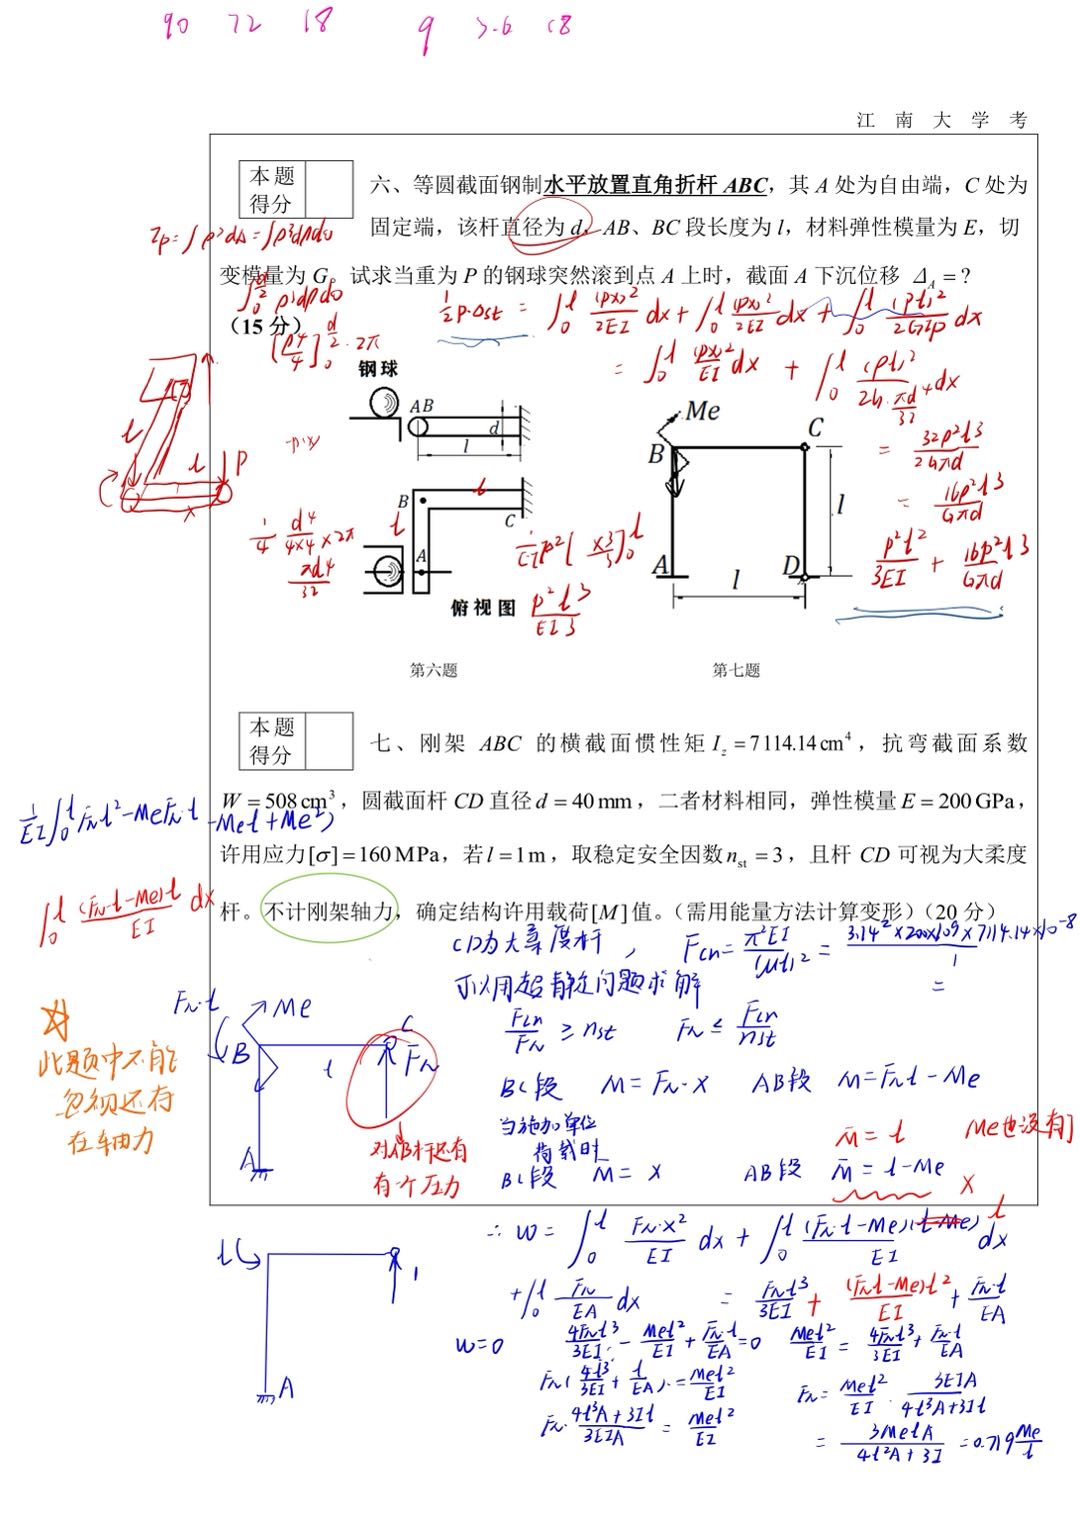 90 72 18 9 3.6 18
江 南 大 学 考
本题
得分
六、等圆截面钢制水平放置直角折杆 ABC，其 A 处为自由端，C 处为
固定端，该杆直径为 d，AB、BC 段长度为 l，材料弹性模量为 E，切
变模量为 G。试求当重为 P 的钢球突然滚到点 A 上时，截面 A 下沉位移 Δ_A = ?
（15 分）
Ip = ∫ρ²dA = ∫ρ³dρdθ
∫₀^{d/2} ρ³dρdθ
[ρ⁴/4]₀^{d/2} · 2π
1/2 P·Δst = ∫₀^l (Px)²/2EI dx + ∫₀^l (Px)²/2EI dx + ∫₀^l (Pl)²/2GIp dx
= ∫₀^l (Px)²/EI dx + ∫₀^l (Pl)²/2G·πd⁴/32 dx
= 32P²l³/2Gπd
= 16P²l³/Gπd
P²l²/3EI + 16P²l³/Gπd
l
l
P
x
-P·x
1/4 d⁴/4×4 ×2π
πd⁴/32
钢球
AB
d
l
B
l
C
l
A
俯视图
1/EI P²[x³/3]₀^l
P²l³/EI3
Me
B
C
l
A
D
l
第六题
第七题
本题
得分
七、刚架 ABC 的横截面惯性矩 I_z = 7114.14 cm⁴，抗弯截面系数
W = 508 cm³，圆截面杆 CD 直径 d = 40 mm，二者材料相同，弹性模量 E = 200 GPa，
许用应力[σ] = 160 MPa，若 l = 1 m，取稳定安全因数 n_st = 3，且杆 CD 可视为大柔度
杆。不计刚架轴力，确定结构许用载荷[M]值。（需用能量方法计算变形）（20 分）
1/EI ∫₀^l FNl² - MeFN·l - Mel + Me²)
∫₀^l (FN·l-Me)l/EI dx
CD为大柔度杆，
Fcr = π²EI/(μl)² = 3.14²×200×10⁹×7114.14×10⁻⁸/1
=
可以用超静定问题求解
Fcr/FN ≥ nst FN ≤ Fcr/nst
BC段 M = FN·x AB段 M = FNl - Me
当施加单位
荷载时
BC段 M̄ = x AB段 M̄ = l-Me x
M̄ = l Me也没有了
FN·l
Me
B
l
C
FN
A
对AB杆还有
有个压力
☆
此题中不能
忽视还存
在轴力
l
1
A
∴ w = ∫₀^l FN·x²/EI dx + ∫₀^l (FN·l-Me)(l-Me) l/EI dx
+ ∫₀^l FN/EA dx = FNl³/3EI + (FNl-Me)l²/EI + FN·l/EA
w=0 4FNl³/3EI - Mel²/EI + FN·l/EA = 0 Mel²/EI = 4FNl³/3EI + FN·l/EA
FN(4l³/3EI + l/EA) = Mel²/EI FN = Mel²/EI · 3EIA/4l³A+3Il
FN· 4l³A+3Il/3EIA = Mel²/EI = 3MelA/4l²A+3I = 0.719 Me/l